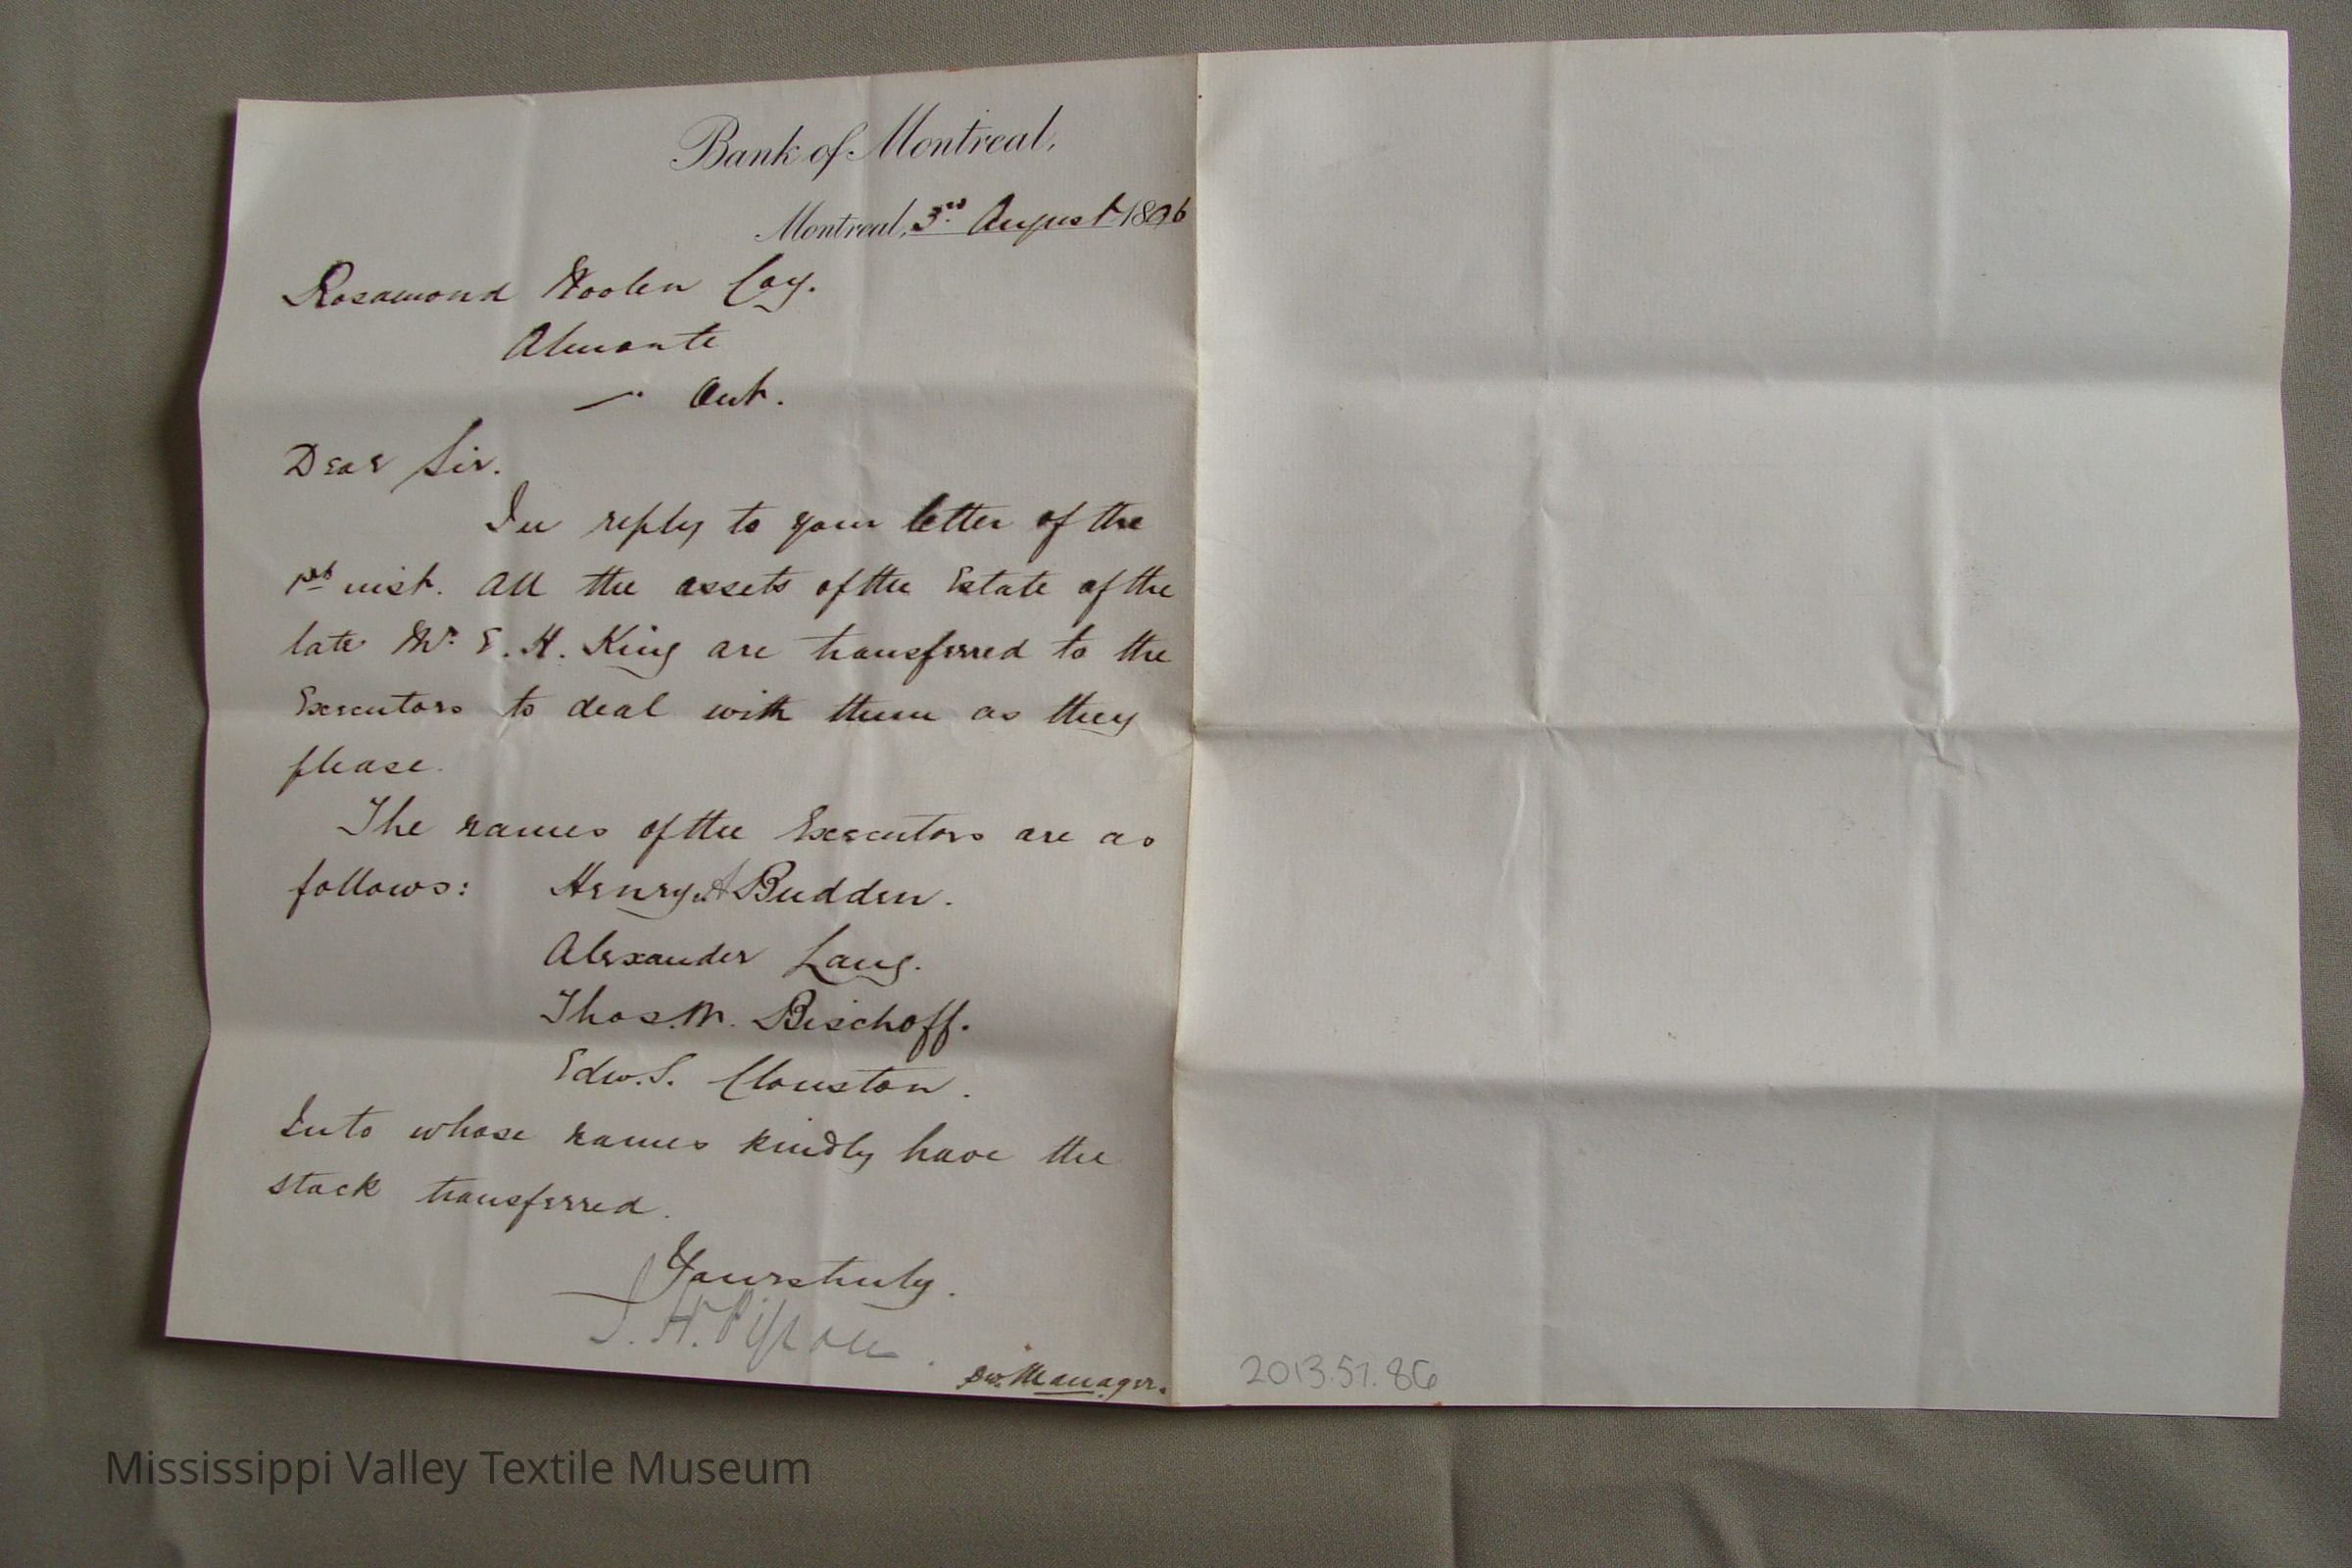 Bank of Montreal,
Montreal, 3rd August 1896
Rosamond Woolen Coy.
Almonte
— Ont.
Dear Sir.
In reply to your letter of the
1st inst. All the assets of the Estate of the
late Mr. E. H. King are transferred to the
Executors to deal with them as they
please.
The names of the Executors are as
follows: Henry A Budden.
Alexander Lang.
Thos. M. Bischoff.
Edw. S. Clouston.
Into whose names kindly have the
stock transferred.
Yours truly.
Manager.
2013.57.86
Mississippi Valley Textile Museum